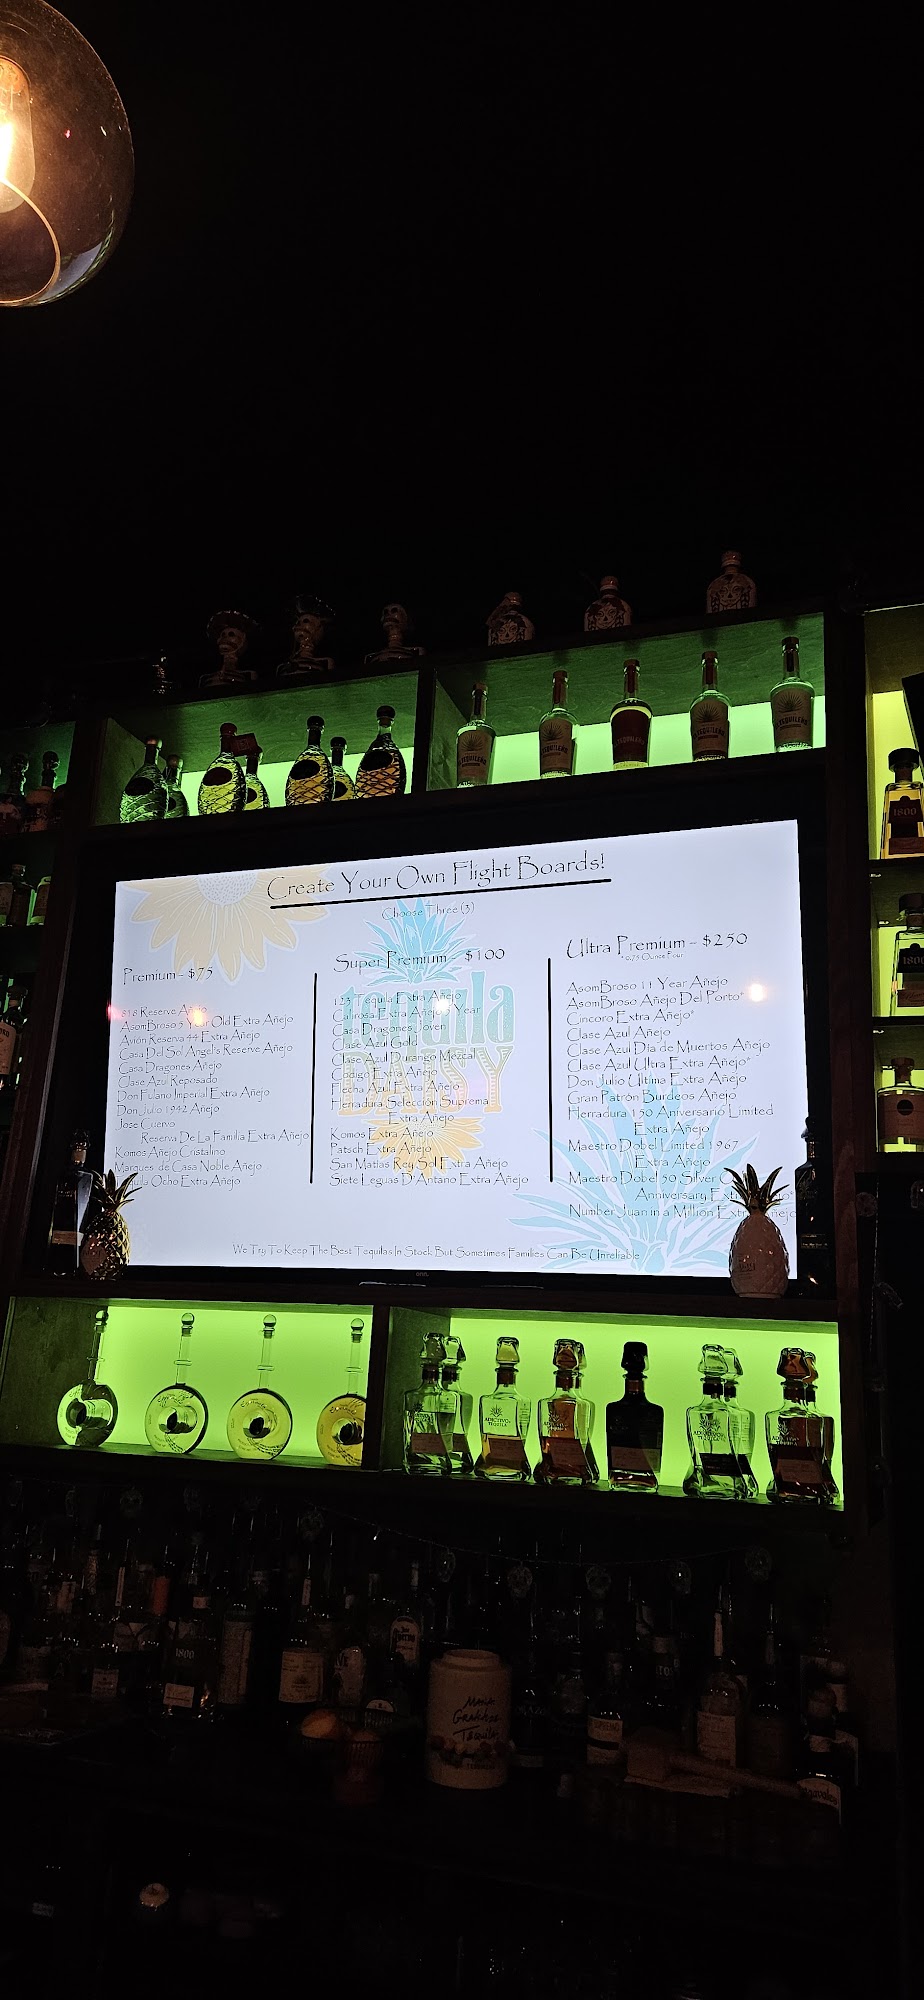 Create Your Own Flight Boards!
Choose Three (3)
Premium - $75
818 Reserve Añejo
AsomBroso 5 Year Old Extra Añejo
Avion Reserva 44 Extra Añejo
Casa Del Sol Angel's Reserve Añejo
Casa Dragones Añejo
Clase Azul Reposado
Don Fulano Imperial Extra Añejo
Don Julio 1942 Añejo
Jose Cuervo
Reserva De La Familia Extra Añejo
Komos Añejo Cristalino
Marques de Casa Noble Añejo
Ocho Extra Añejo
Super Premium - $100
123 Tequila Extra Añejo
Calirosa Extra Añejo 5 Year
Casa Dragones Joven
Clase Azul Gold
Clase Azul Durango Mezcal
Codigo Extra Añejo
Flecha Azul Extra Añejo
Herradura Selección Suprema
Extra Añejo
Komos Extra Añejo
Patsch Extra Añejo
San Matias Rey Sol Extra Añejo
Siete Leguas D'Antano Extra Añejo
Ultra Premium - $250
*0.75 Ounce Pour
AsomBroso 11 Year Añejo
AsomBroso Añejo Del Porto*
Cincoro Extra Añejo*
Clase Azul Añejo
Clase Azul Día de Muertos Añejo
Clase Azul Ultra Extra Añejo*
Don Julio Ultima Extra Añejo
Gran Patrón Burdeos Añejo
Herradura 150 Aniversario Limited
Extra Añejo
Maestro Dobel Limited 1967
Extra Añejo
Maestro Dobel 50 Silver
Anniversary
Number Juan in a Million Extra Añejo
We Try To Keep The Best Tequilas In Stock But Sometimes Families Can Be Unreliable
tequila
DAISY
onn.
TEQUILEÑO
1800
1800
ADICTIVO
TEQUILA
1800
MAMA
GRANDE'S
TEQUILA